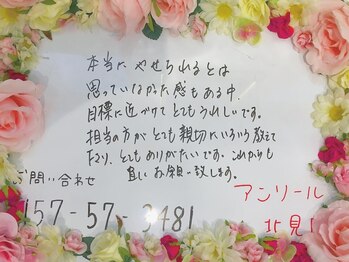 本当に やせられるとは
思っていなかった感もある中、
目標に近づけて とてもうれしいです。
担当の方が とても親切にいろいろ教えて
下さり、とてもありがたいです。これからも
宜しくお願い致します。
ご問い合わせ
157-57-3481
アンソール
北見